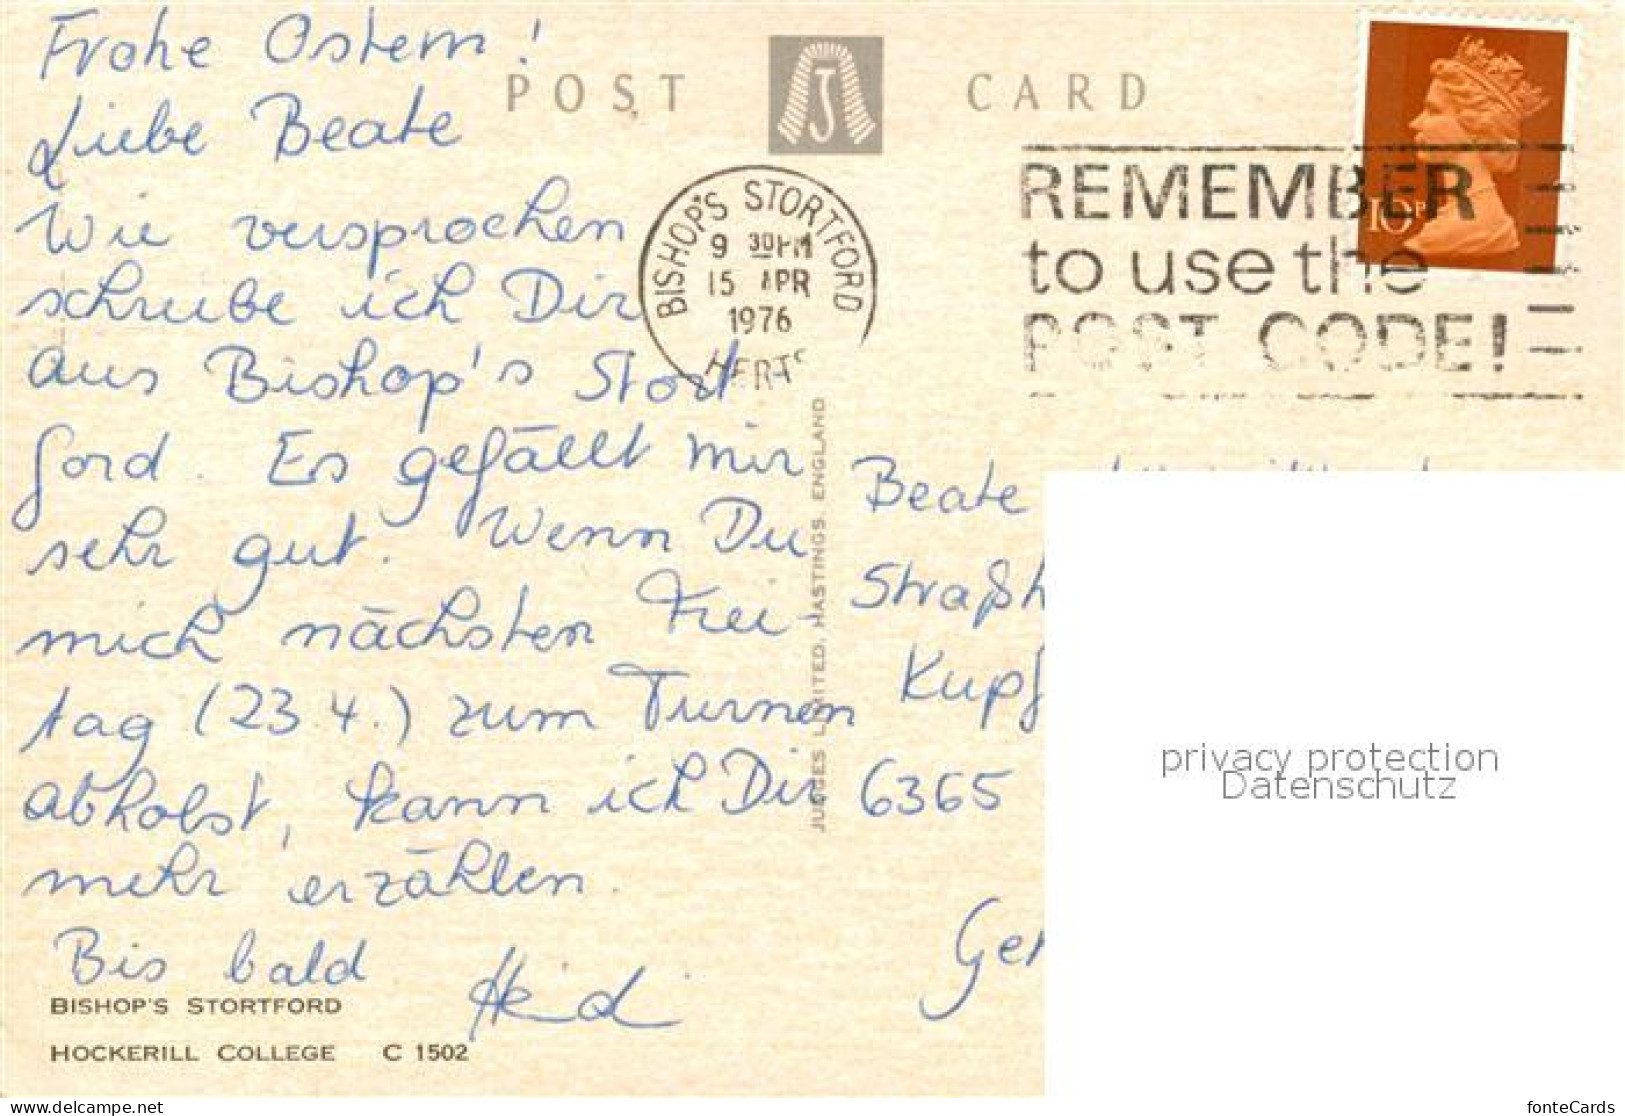 Frohe Ostern!
POST CARD
Liebe Beate
Wie versprochen
schreibe ich Dir
aus Bishop's Stort
ford. Es gefällt mir
sehr gut. Wenn Du
mich nächsten Frei-
tag (23.4.) zum Turnen
abholst, kann ich Dir
mehr erzählen.
Bis bald
Heidi
BISHOP'S STORTFORD
HOCKERILL COLLEGE C 1502
BISHOP'S STORTFORD
9 30PM
15 APR
1976
HERTS
REMEMBER
to use the
POST CODE!
10P
JUDGES LIMITED, HASTINGS, ENGLAND
Beate
Straßh
Kupf
6365
Ger
privacy protection
Datenschutz
www.delcampe.net
fonteCards